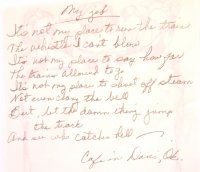 My job
It's not my place to run the train
The whistle I cant blow
It's not my place to say how far
The trains allowed to go
It's not my place to shoot off steam
Nor even clang the bell
But, let the damn thing jump
the track
And see who catches hell